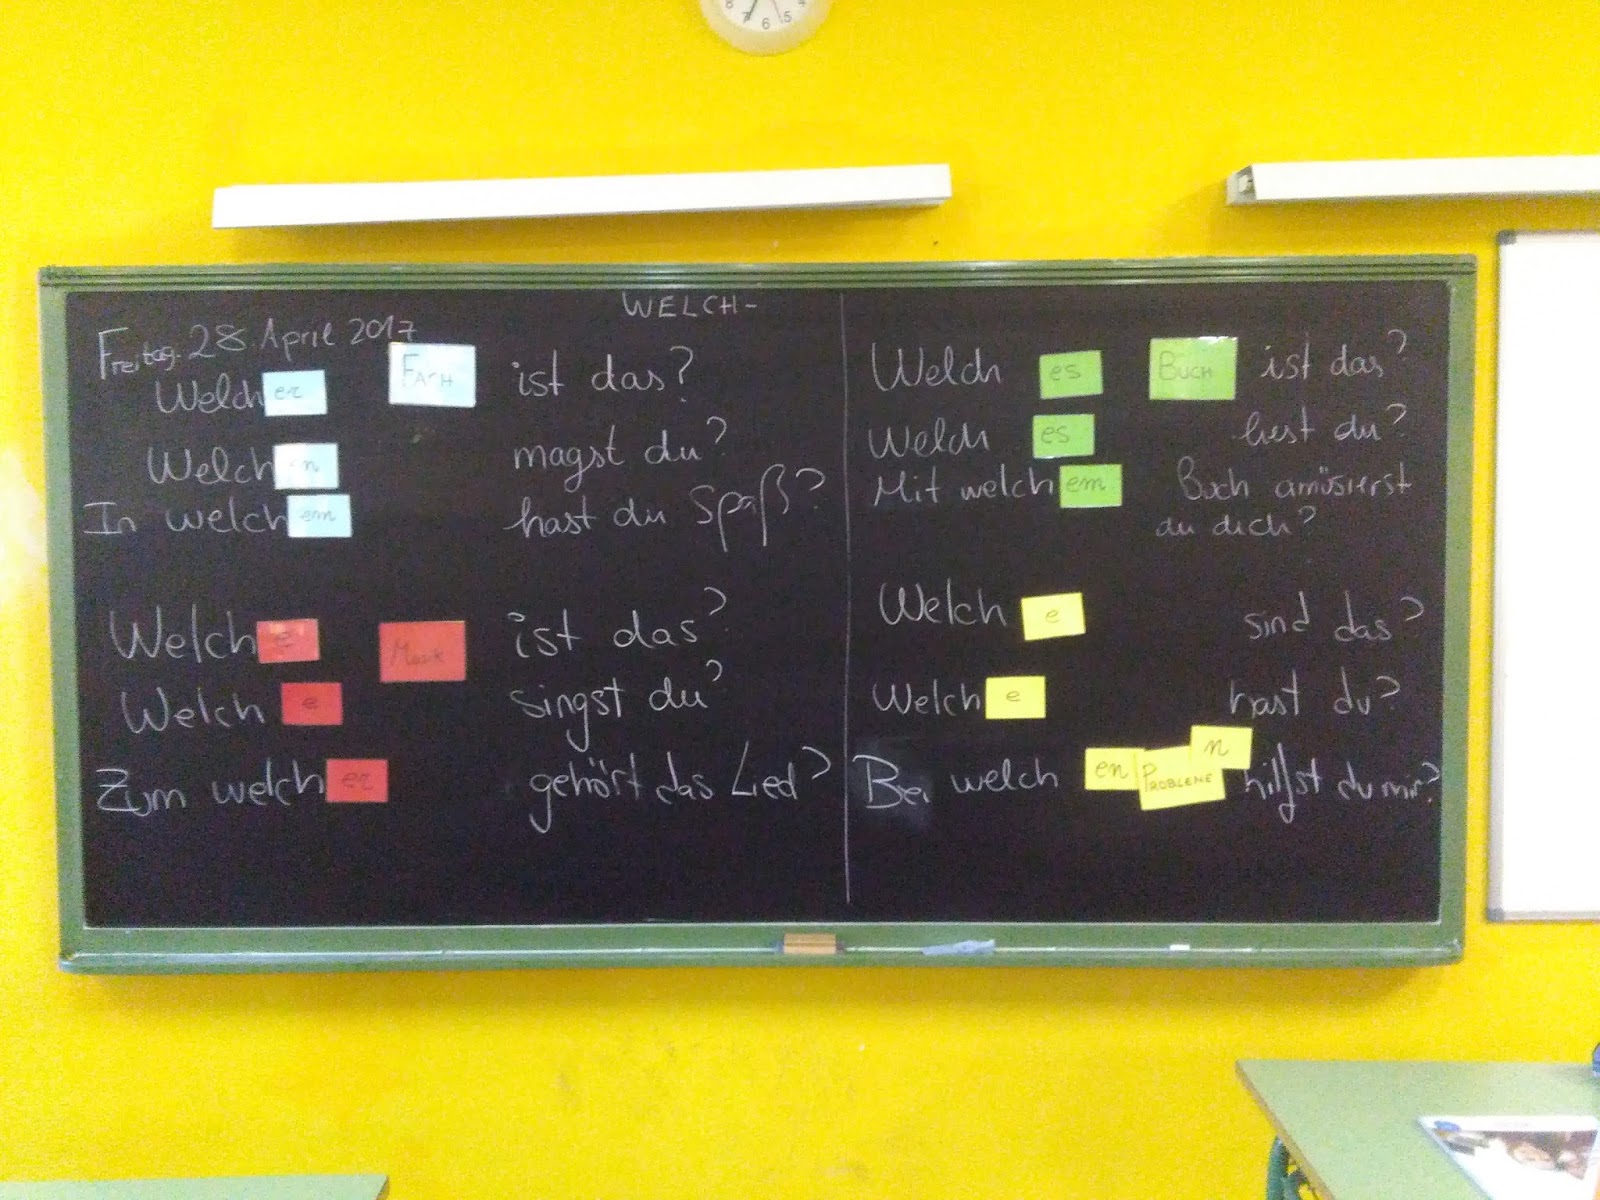 8 7 6 5 4
WELCH-
Freitag. 28. April 2017
Welcher FACH ist das?
Welchen magst du?
In welchem hast du Spaß?
Welche Musik ist das?
Welche singst du?
Zum welcher gehört das Lied?
Welch es BUCH ist das?
Welch es liest du?
Mit welchem Buch amüsierst
du dich?
Welch e sind das?
Welche hast du?
Bei welch en PROBLEME n hilfst du mir?